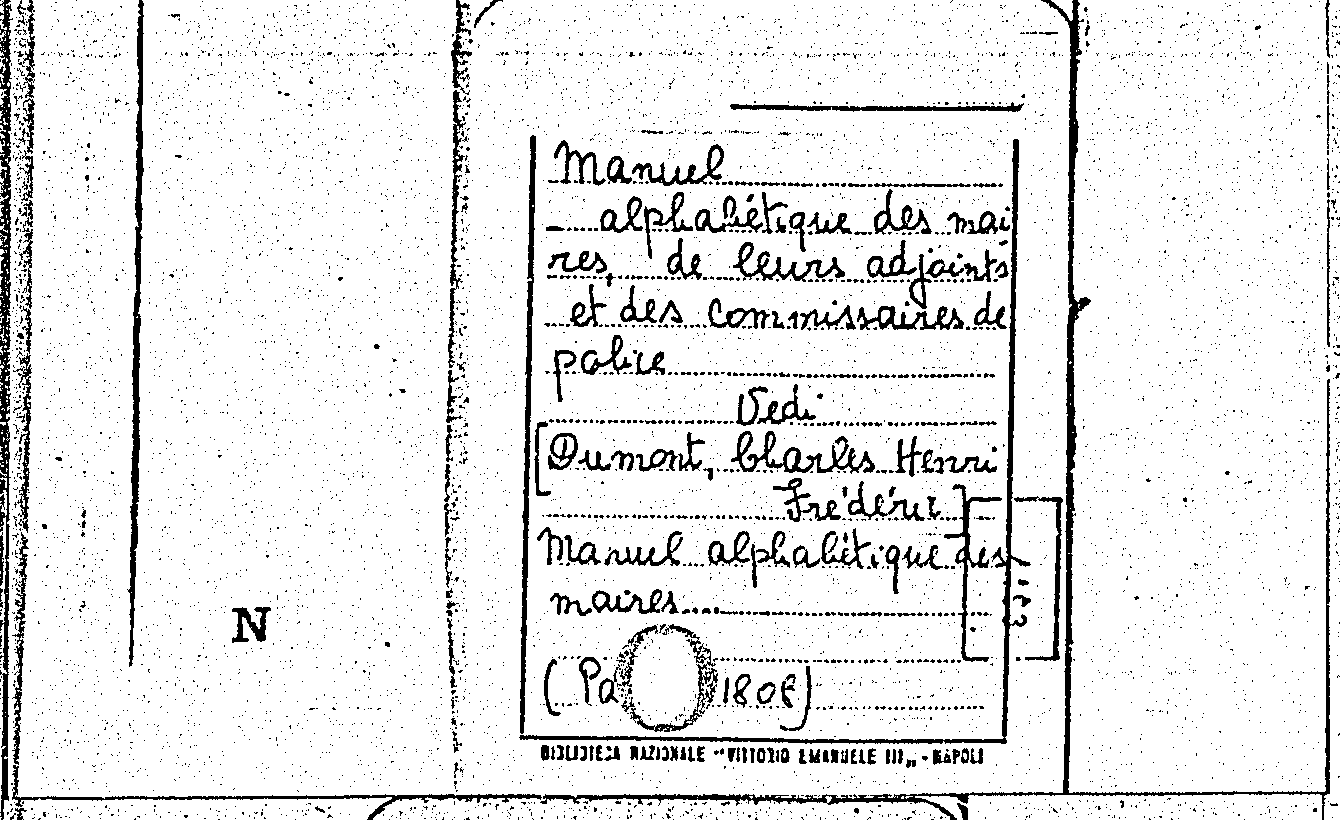 Manuel
alphabétique des mai
res, de leurs adjoints
et des commissaires de
police
Vedi
[Dumont, Charles Henri
Frédéric]
Manuel alphabétique des
maires....
(Pa
N
BIBLIOTECA NAZIONALE "VITTORIO EMANUELE III„ - NAPOLI